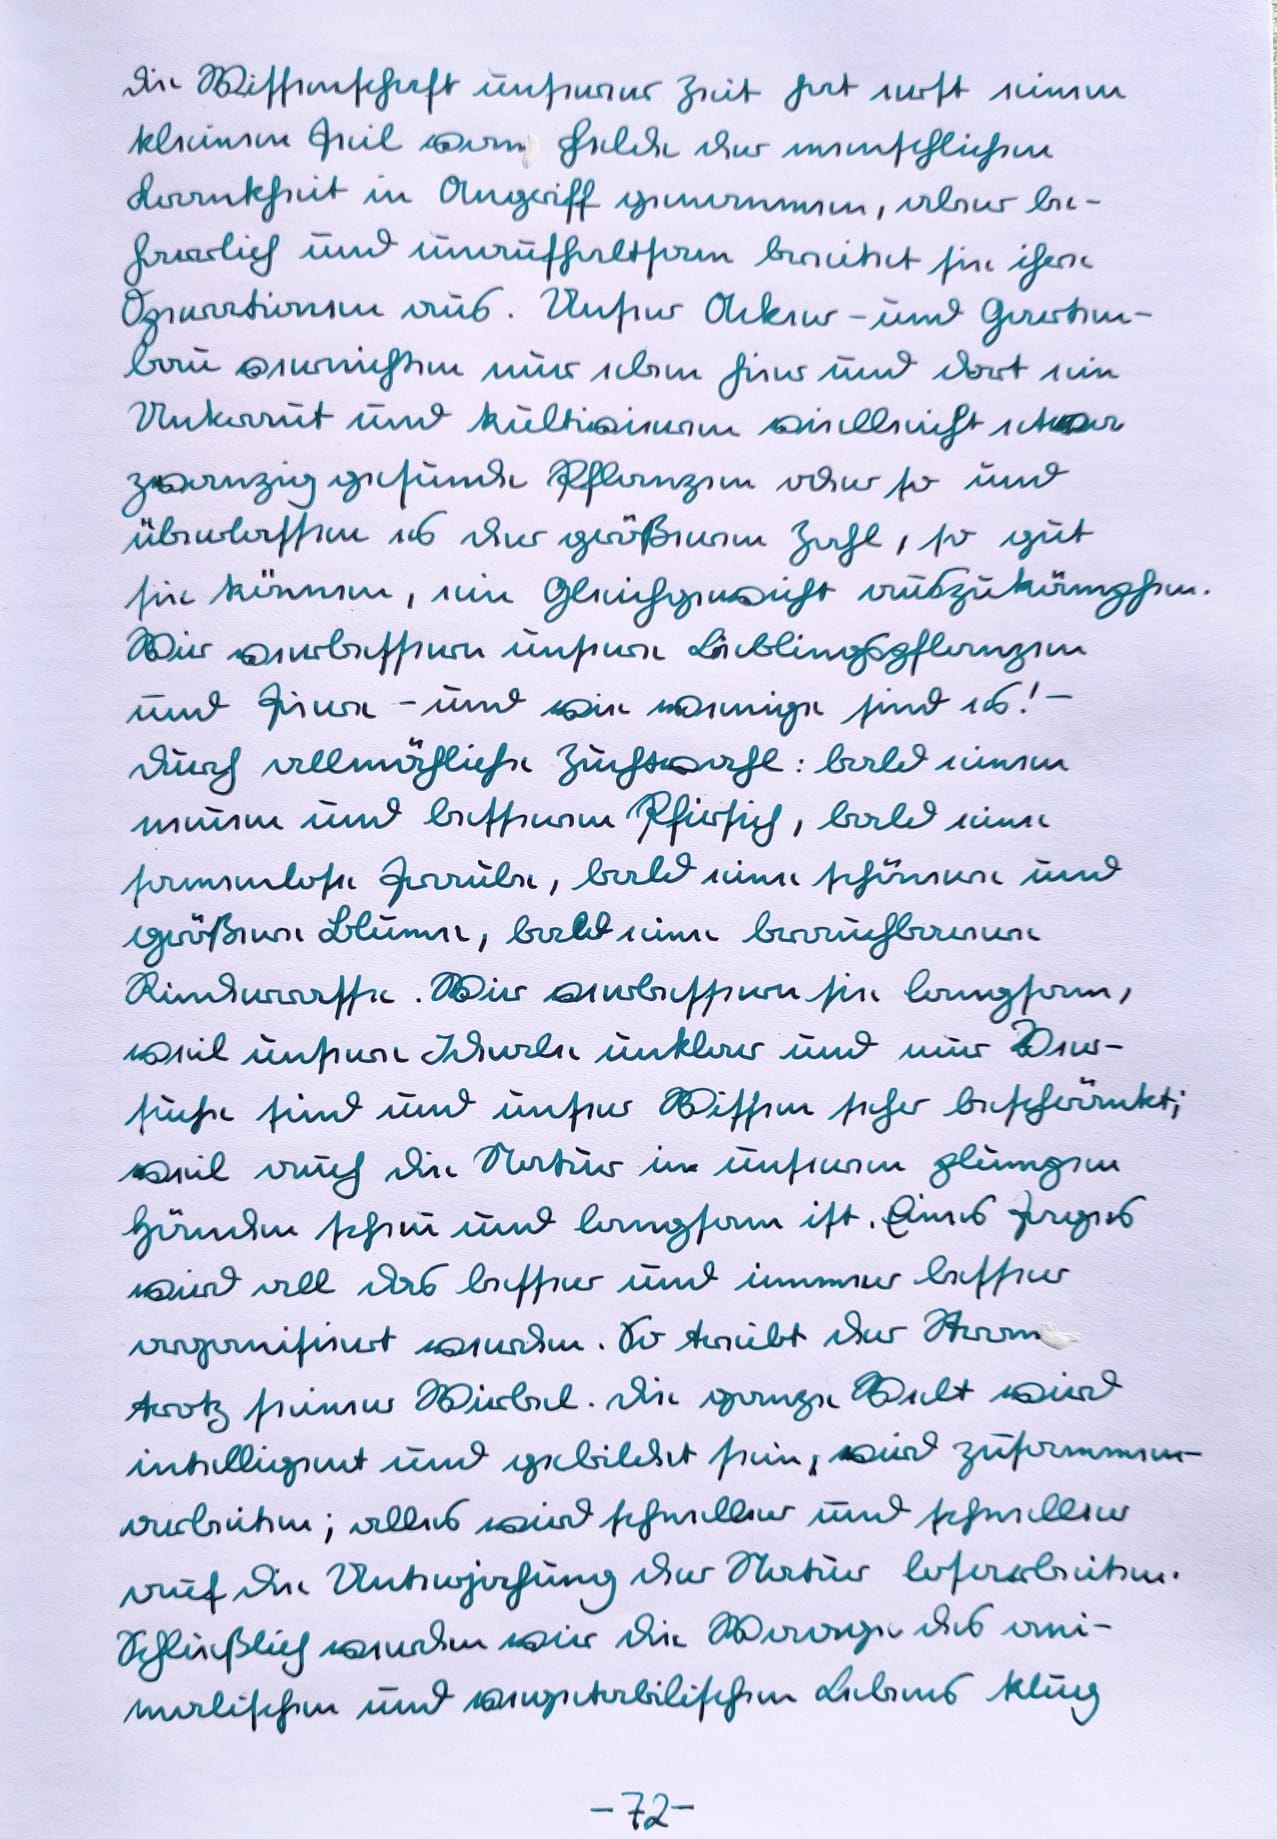 die Wissenschaft unserer Zeit hat erst einen
kleinen Teil vom Felde der menschlichen
Krankheit in Angriff genommen, aber be-
harrlich und unaufhaltsam breitet sie ihre
Operationen aus. Unser Acker- und Garten-
bau vernichten nur eben hier und dort ein
Unkraut und kultivieren vielleicht etwa
zwanzig gesunde Pflanzen oder so und
überlassen es der größeren Zahl, so gut
sie können, ein Gleichgewicht auszukämpfen.
Wir verbessern unsere Lieblingspflanzen
und Tiere – und wie wenige sind es! –
durch allmähliche Zuchtwahl: bald einen
neuen und besseren Pfirsich, bald eine
samenlose Traube, bald eine schönere und
größere Blume, bald eine brauchbarere
Rinderrasse. Wir verbessern sie langsam,
weil unsere Ideale unklar und nur Ver-
suche sind und unser Wissen sehr beschränkt;
weil auch die Natur in unseren plumpen
Händen scheu und langsam ist. Eines Tages
wird all das besser und immer besser
organisiert werden. So treibt der Strom
trotz seiner Wirbel. Die ganze Welt wird
intelligent und gebildet sein, wird zusammen-
arbeiten; alles wird schneller und schneller
auf die Unterjochung der Natur losarbeiten.
Schließlich werden wir die Waage des ani-
malischen und vegetabilischen Lebens klug
-72-